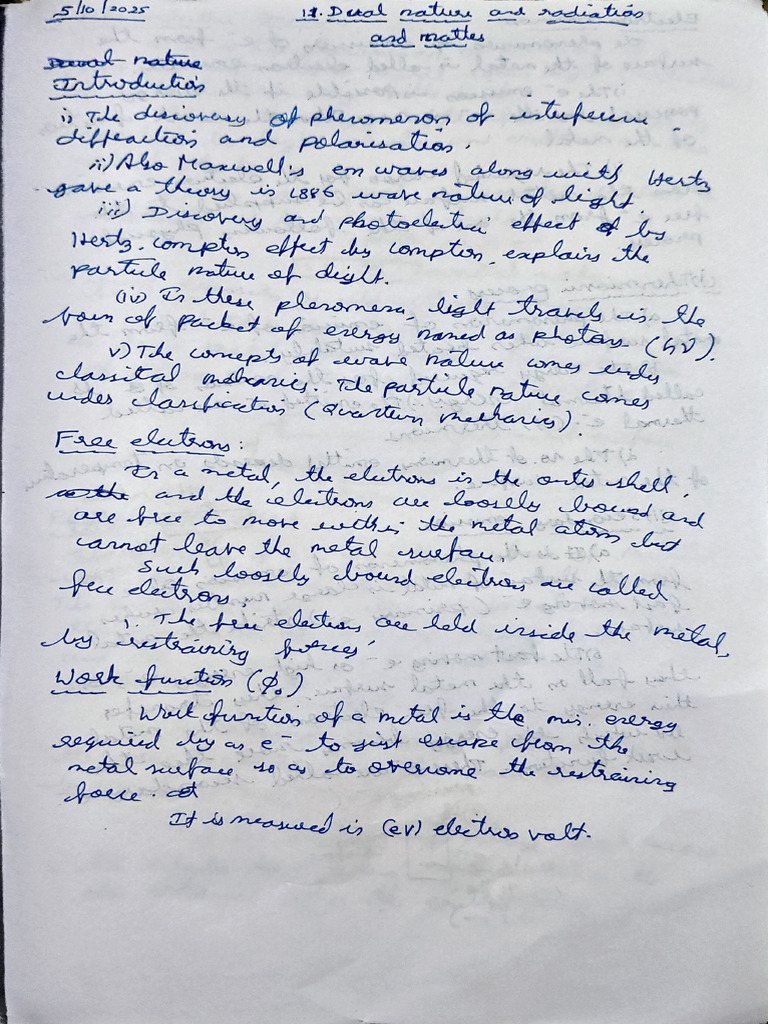 5/10/2025 11. Dual nature and radiation
and matter
Dual nature
Introduction
i) The discovery of phenomenon of interference
diffraction and polarisation.
ii) Also Maxwell's em waves along with Hertz
gave a theory in 1886 wave nature of light
iii) Discovery and photoelectric effect of by
Hertz. compton effect by compton, explains the
particle nature of light.
(iv) In these phenomena, light travels in the
form of packet of energy named as photons (hν).
v) The concepts of wave nature comes under
classical mechanics. The particle nature comes
under classification (Quantum mechanics).
Free electrons:
In a metal, the electrons in the outer shell,
and the electrons are loosely bound and
are free to move within the metal atoms but
cannot leave the metal surface.
Such loosely bound electrons are called
free electrons.
The free electrons are held inside the metal,
by restraining forces'
Work function (ϕ₀)
Work function of a metal is the min. energy
required by an e⁻ to just escape from the
metal surface so as to overcome the restraining
force.
It is measured in (eV) electron volt.